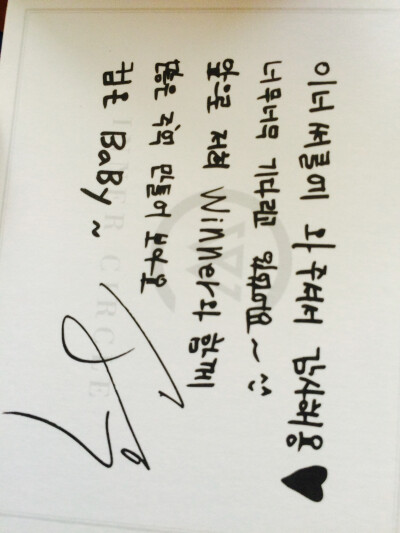 이너써클이 와 주셔서 감사해요 ♥
너무너무 기다리고 있었어요~ ^^
앞으로 저희 WiNNeR와 함께
추억 만들어 보아요
컴온 BaBy~
INNER CIRCLE